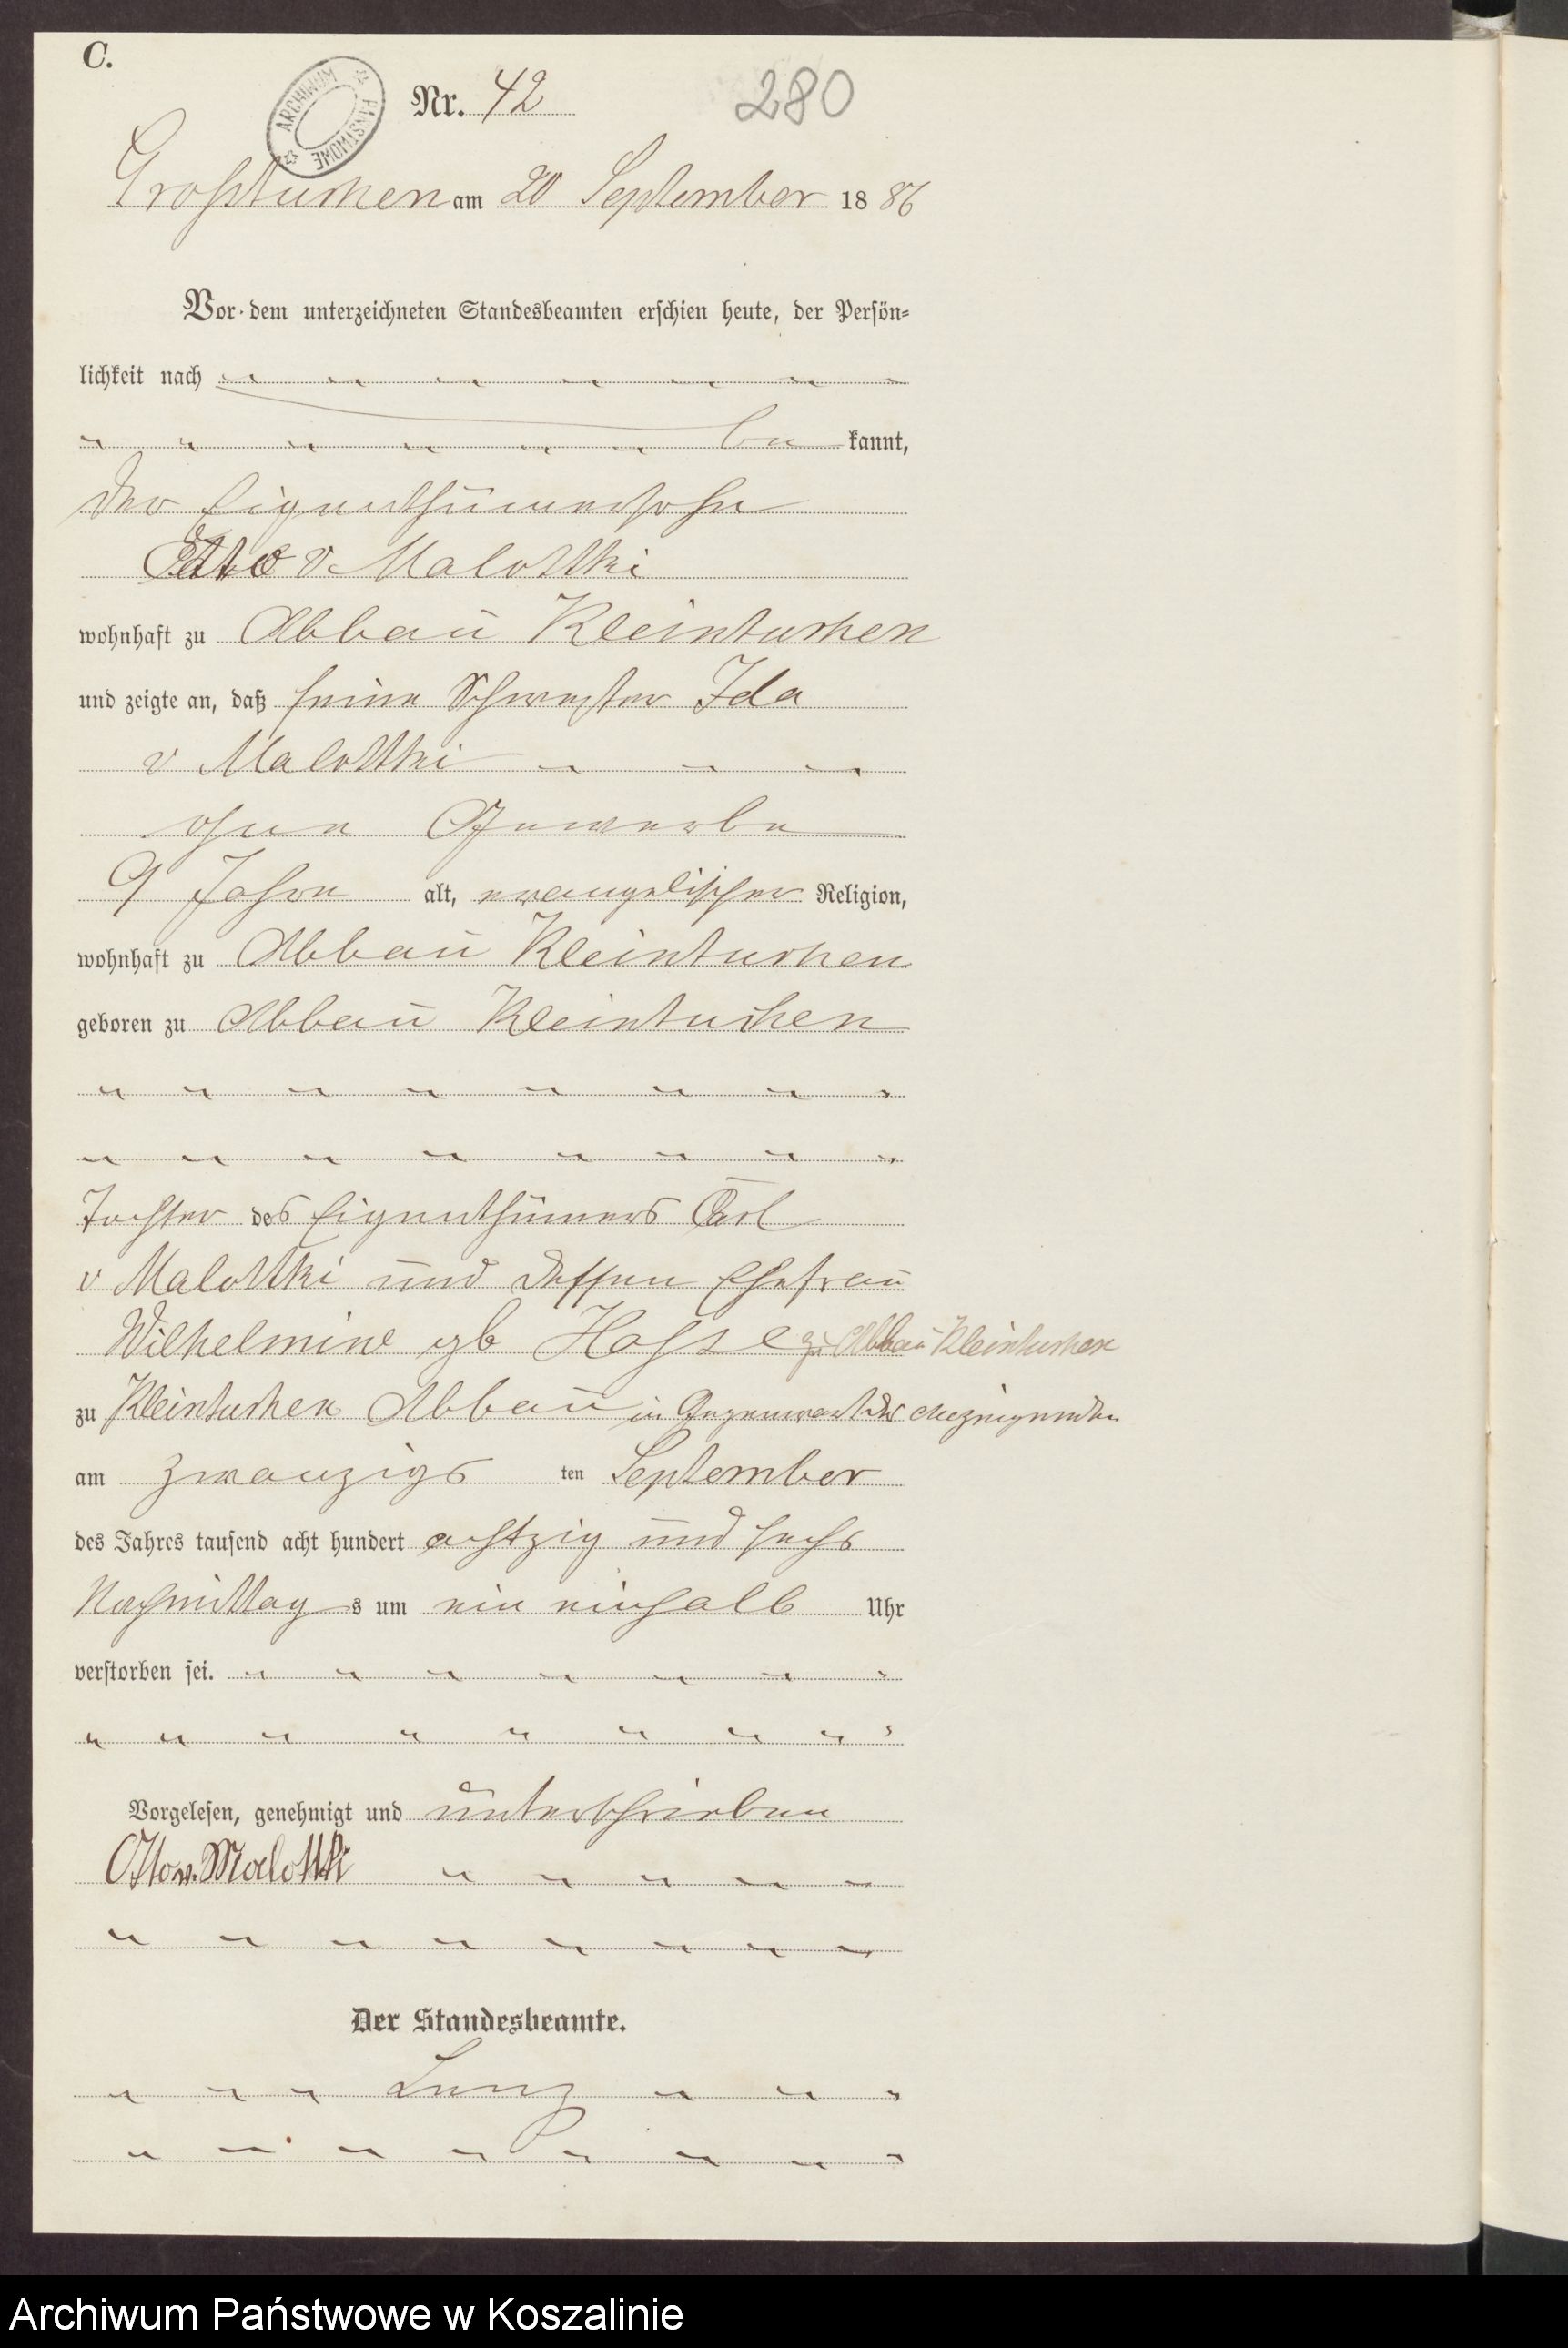 C.
ARCHIWUM PAŃSTWOWE
Nr. 42
280
Großtuchen am 20 September 18 86
Vor dem unterzeichneten Standesbeamten erschien heute, der Persön=
lichkeit nach
be kannt,
der Eigenthümersohn
Otto v. Malottki
wohnhaft zu Abbau Kleintuchen
und zeigte an, daß seine Schwester Ida
v Malottki
ohne Gewerbe
9 Jahre alt, evangelischer Religion,
wohnhaft zu Abbau Kleintuchen
geboren zu Abbau Kleintuchen
Tochter des Eigenthümers Carl
v Malottki und dessen Ehefrau
Wilhelmine gb zu Abbau Kleintuchen
zu Kleintuchen Abbau in Gegenwart des Anzeigenden
am zwanzigs ten September
des Jahres tausend acht hundert achtzig und sechs
Nachmittag s um ein einhalb Uhr
verstorben sei.
Vorgelesen, genehmigt und unterschrieben
Otto v. Malottki
Der Standesbeamte.
Archiwum Państwowe w Koszalinie